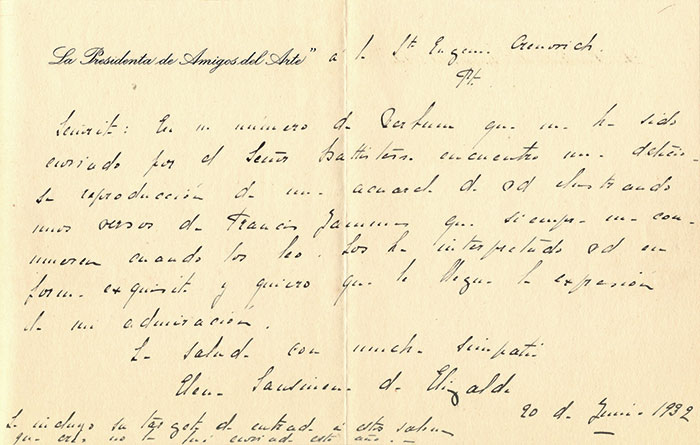 "La Presidenta de Amigos del Arte" á la Sta Eugenia Crenovich.
Pte
Señorita: En un número de que me ha sido
enviado por el Señor encuentro una delicio-
sa reproducción de una acuarela de Vd ilustrando
unos versos de Francis Jammes que siempre me con-
mueven cuando los leo. Los ha interpretado Vd en
forma exquisita y quiero que le llegue la expresión
de mi admiración.
La saluda con mucha simpatía
Elena Sansinena de Elizalde
20 de Junio 1932
Le incluyo su tarjeta de entrada á esta
que creo no le fué enviada este año.